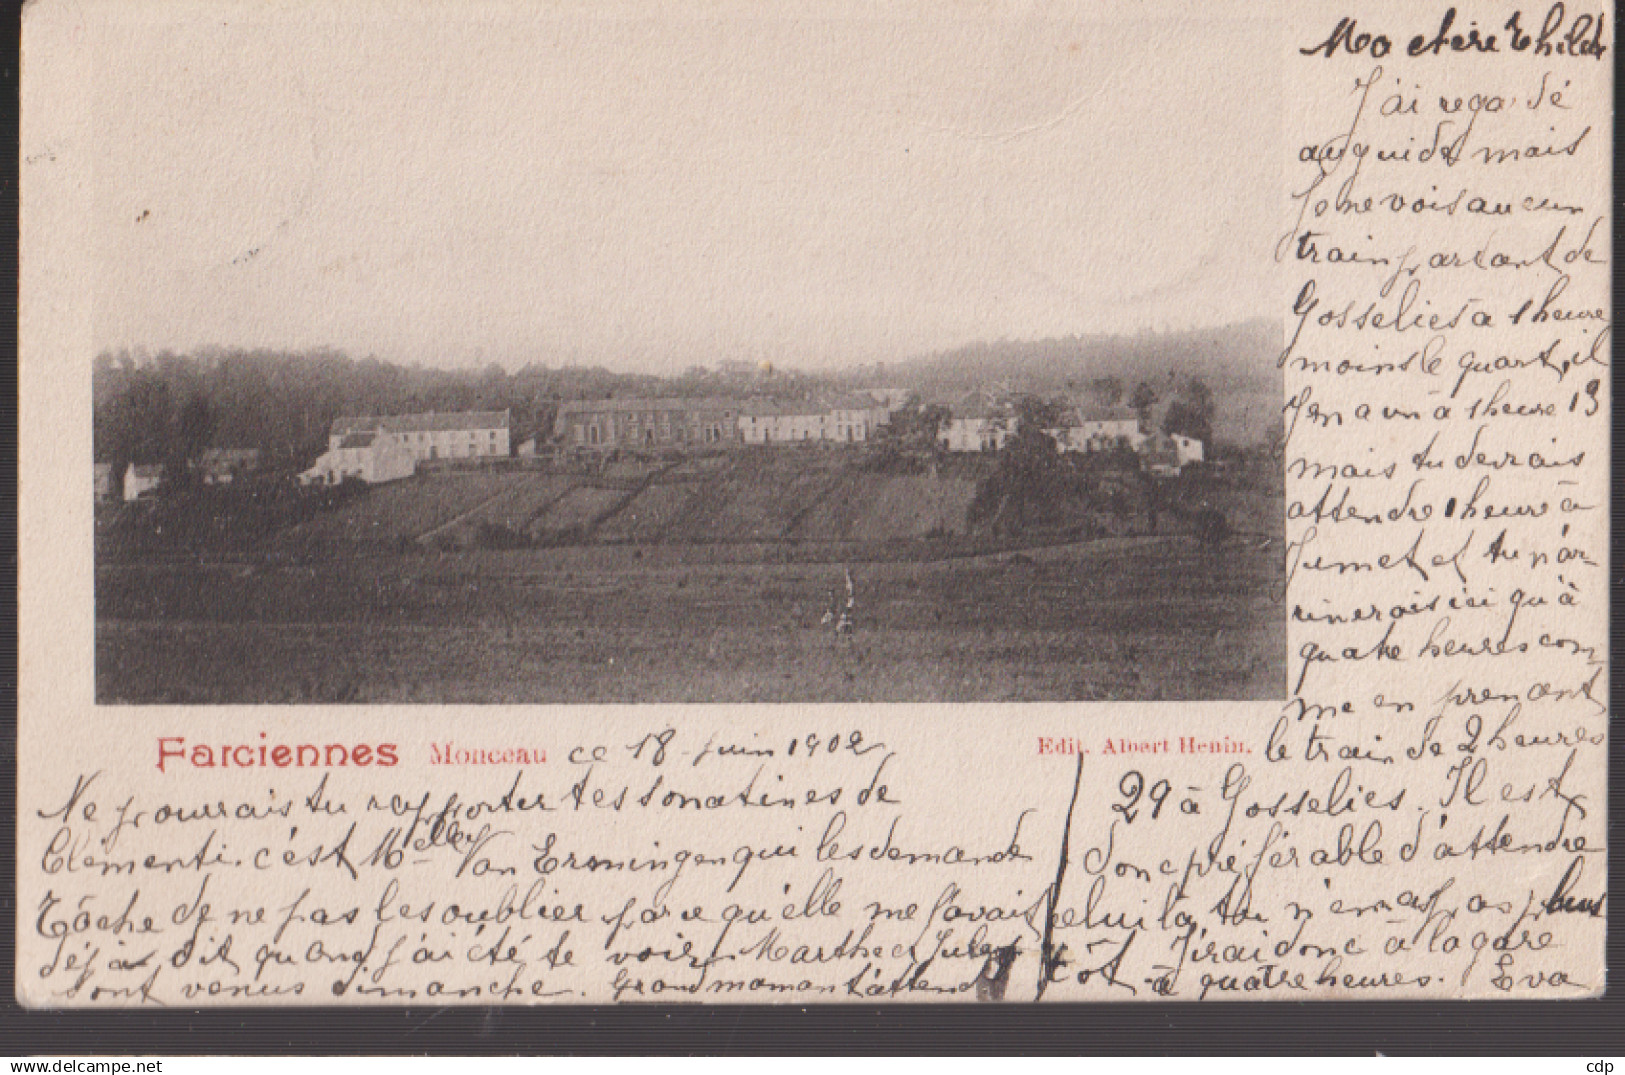 Ma chère Thilde
J'ai regardé
au guide mais
je ne vois aucun
train partant de
Gosselies à 1 heure
moins le quart, il
y en a un à 1 heure 13
mais tu devrais
attendre 1 heure à
Jumet et tu n'ar-
riverais ici qu'à
quatre heures com-
me en prenant
le train de 2 heures
29 à Gosselies. Il est
donc préférable d'attendre
celui là, tu n'en as pas plus
tôt. J'irai donc à la gare
à quatre heures. Eva
Farciennes Monceau ce 18 juin 1902
Edit. Albert Henin.
Ne pourrais tu rapporter tes sonatines de
Clémenti. c'est Melle Van Ermingen qui les demande
Tâche de ne pas les oublier parce qu'elle me l'avait
déjà dit quand j'ai été te voir. Marthe et Jules
sont venus dimanche. Grand maman t'attend
cdp